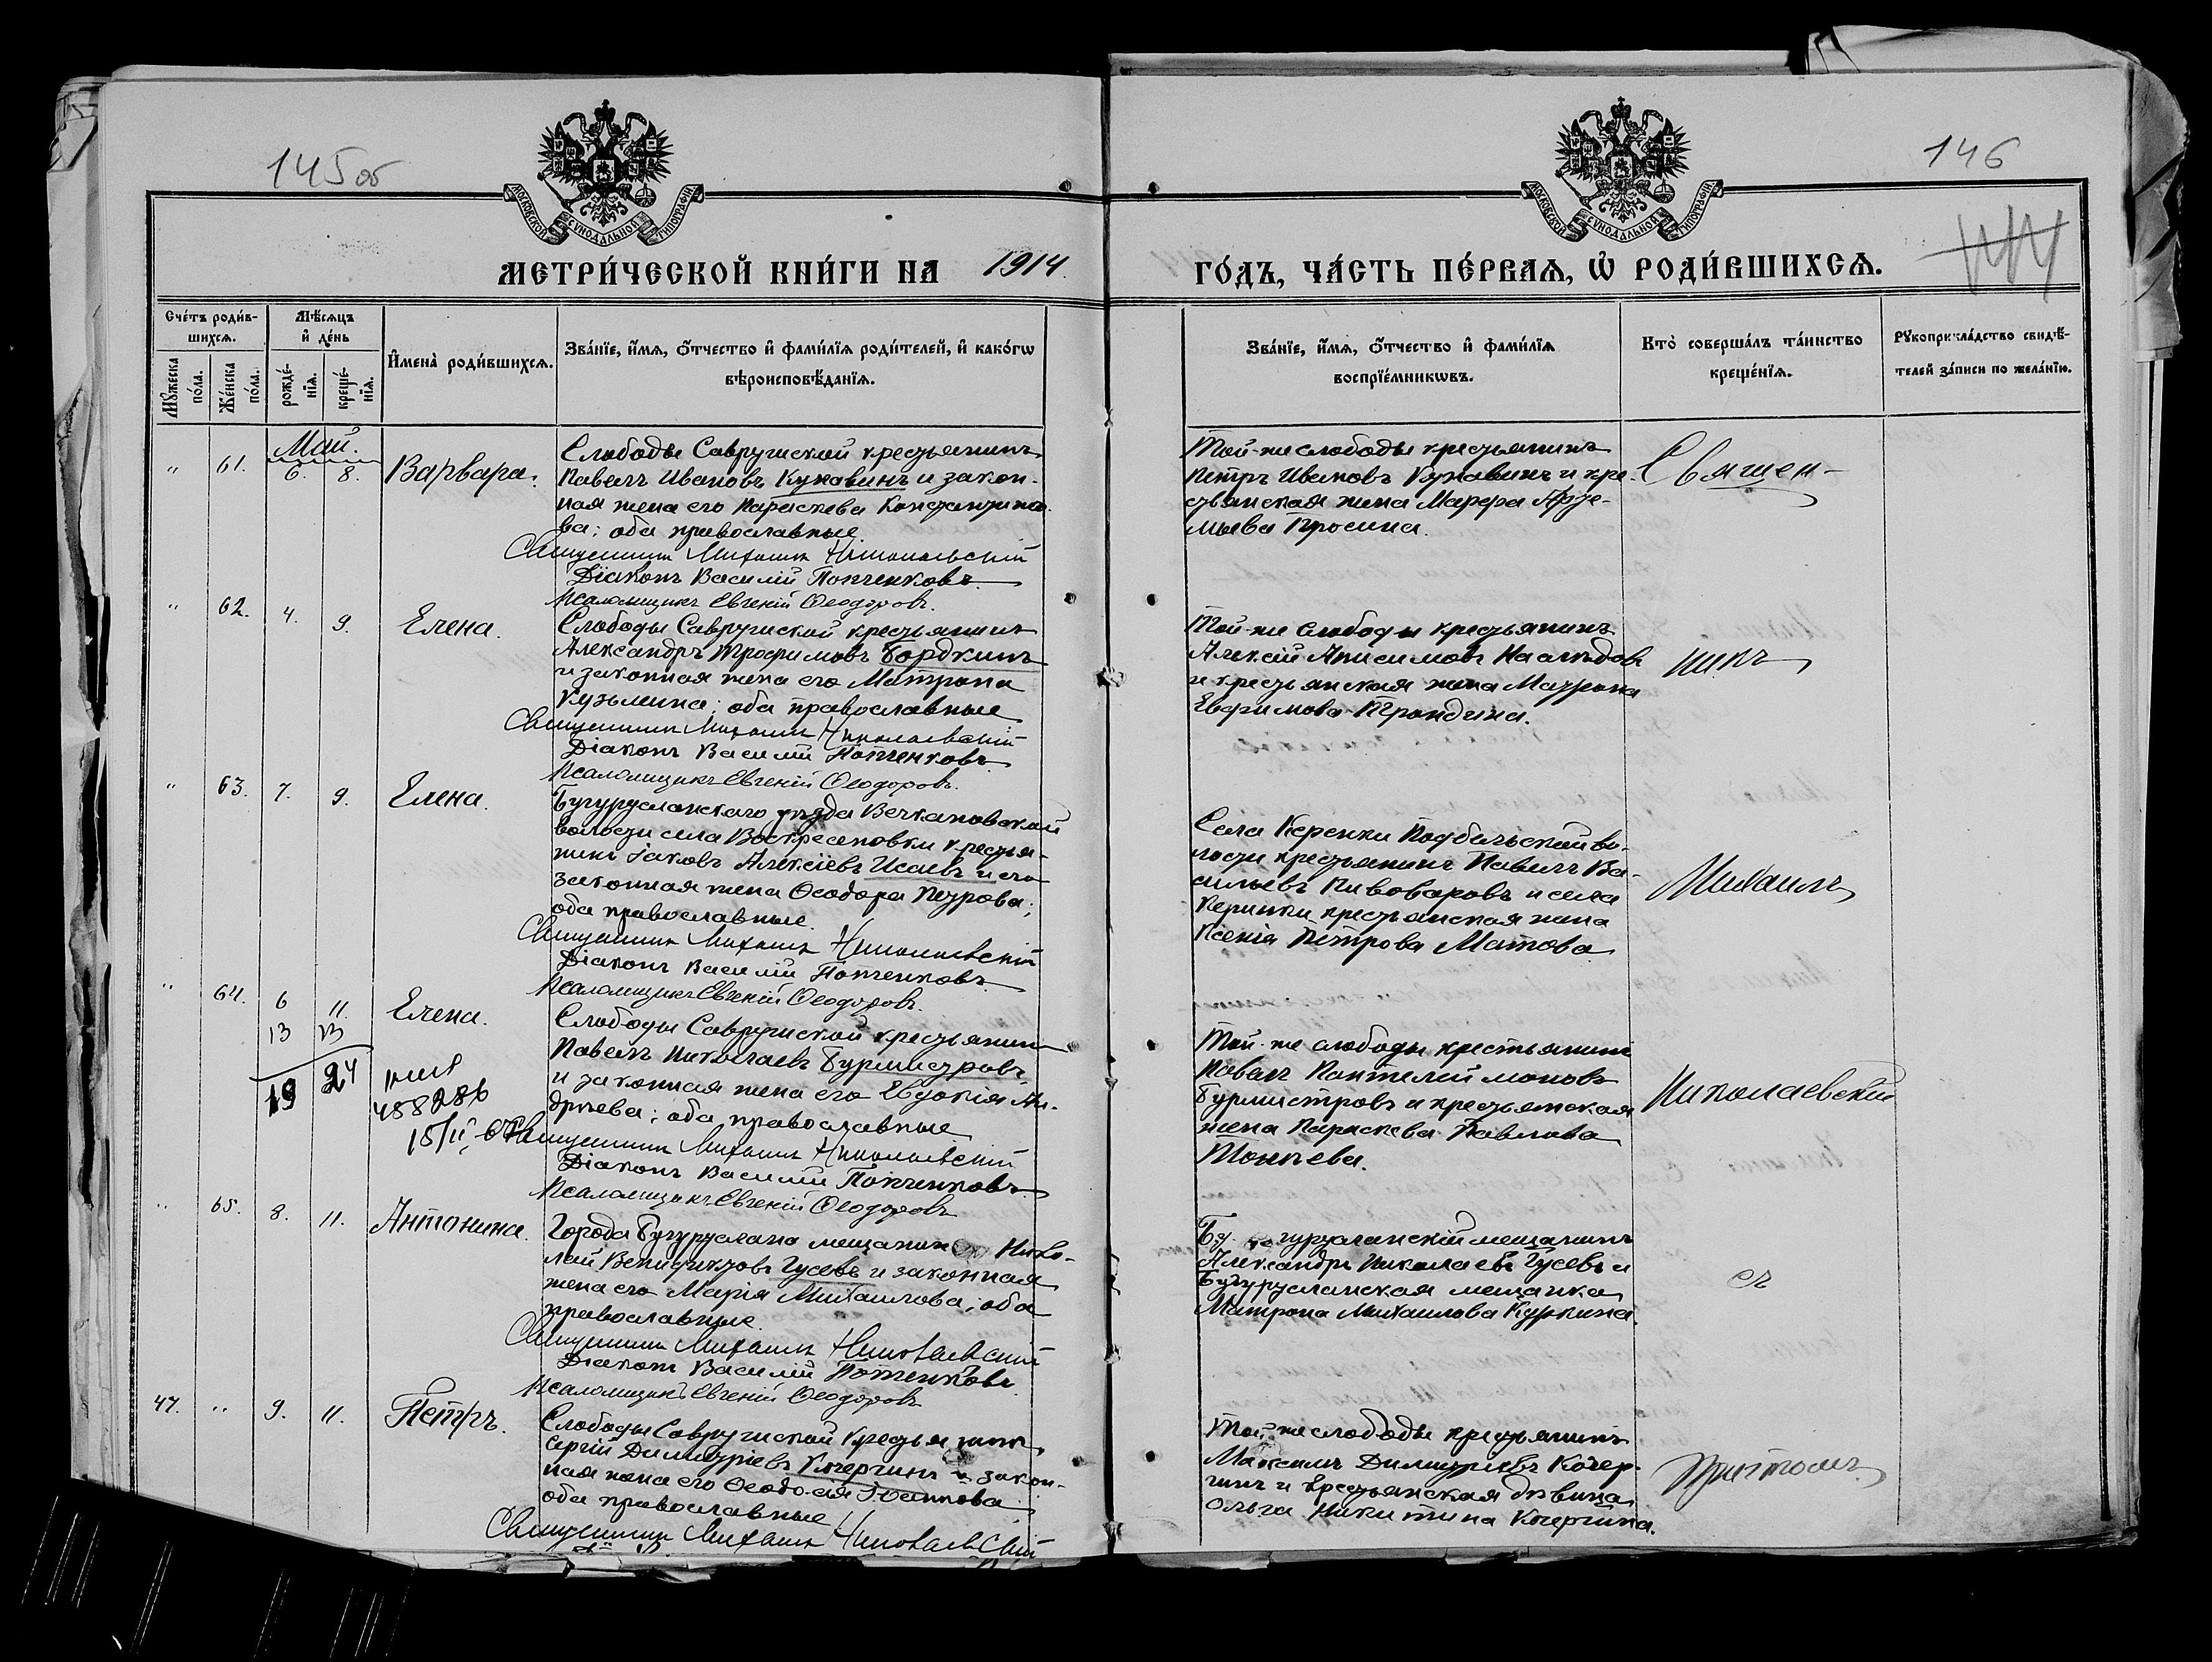 145об
146
МОСКОВСКОЙ СѴНОДАЛЬНОЙ ТИПОГРАФІИ
МОСКОВСКОЙ СѴНОДАЛЬНОЙ ТИПОГРАФІИ
МЕТРИ́ЧЕСКОЙ КНИ́ГИ НА 1914.
ГО́ДЪ, ЧА́СТЬ ПЕ́РВАѦ, Ѡ҆ РОДИ́ВШИХСѦ.
Сче́тъ роди́в-
шихсѧ.
Мꙋ́жеска
по́ла.
Же́нска
по́ла.
Мѣ́сѧцъ
и҆ де́нь
рожде́-
нїѧ.
креще́-
нїѧ.
И҆мена̀ роди́вшихсѧ.
Зва́нїе, и҆́мѧ, ѻ҆́тчество и҆ фами́лїѧ роди́телей, и҆ како́гѡ
вѣроисповѣ́данїѧ.
Зва́нїе, и҆́мѧ, ѻ҆́тчество и҆ фами́лїѧ
воспрїе́мникѡвъ.
Кто̀ соверша́лъ та́инство
креще́нїѧ.
Рꙋкоприкла́дство свидѣ́-
телей за́писи по жела́нїю.
Май.
" 61. 6. 8. Варвара.
Слободы Савруской крестьянинъ
Павелъ Ивановъ Кунавинъ и закон-
ная жена его Параскева Константино-
ва; оба православные.
Священникъ Михаилъ Николаевскій
Діаконъ Василій Попченковъ
Псаломщикъ Евгеній Ѳеодоровъ.
Той-же слободы крестьянинъ
Петръ Ивановъ Кунавинъ и кре-
стьянская жена Марфа Арте-
мьева Просина.
Священ-
" 62. 4. 9. Елена.
Слободы Савруской крестьянинъ
Александръ Трофимовъ Бордкинъ
и законная жена его Матрона
Кузьмина; оба православные
Священникъ Михаилъ Николаевскій
Діаконъ Василій Попченковъ
Псаломщикъ Евгеній Ѳеодоровъ.
Той-же Слободы крестьянинъ
Алексій Анисимовъ
и крестьянская жена Матрона
Евфимова Трондина.
никъ
" 63. 7. 9. Елена.
Бугурусланскаго уѣзда Вечкановской
волости села Воскресеновки крестья-
нинъ Іаковъ Алексіевъ Исаевъ и его
законная жена Ѳеодора Петрова;
оба православные.
Священникъ Михаилъ Николаевскій
Діаконъ Василій Попченковъ
Псаломщикъ Евгеній Ѳеодоровъ
Села Керенки Подбѣльской во-
лости крестьянинъ Павелъ Ва-
сильевъ Пивоваровъ и села
Керенки крестьянская жена
Ксенія Петрова Матова
Михаилъ
" 64. 6 11. Елена.
13 13
19 24
458286
Слободы Савруской крестьянинъ
Павелъ Николаевъ Бурмистровъ
и законная жена его Евдокія Ан-
дреева; оба православные
Священникъ Михаилъ Николаевскій
Діаконъ Василій Попченковъ
Псаломщикъ Евгеній Ѳеодоровъ
Той-же слободы крестьянинъ
Павелъ Пантелеймоновъ
Бурмистровъ и крестьянская
жена Параскева Павлова
Николаевскій
" 65. 8. 11. Антонина.
Города Бугуруслана мещанинъ Нико-
лай Венедиктовъ Гусевъ и законная
жена его Марія Михаилова; оба
православные.
Священникъ Михаилъ Николаевскій
Діаконъ Василій Попченковъ
Псаломщикъ Евгеній Ѳеодоровъ
Бугурусланскій мещанинъ
Александръ Николаевъ Гусевъ и
Бугурусланская мещанка
Матрона Михаилова Куркина.
съ
47. " 9. 11. Петръ.
Слободы Савруской крестьянинъ
Сергій Димитріевъ Кочергинъ и закон-
ная жена его Ѳеодосія
оба православные
Священникъ Михаилъ Николаевскій
Той-же слободы крестьянинъ
Максимъ Димитріевъ Кочер-
гинъ и крестьянская дѣвица
Ольга Никитина Кочергина.
Причтомъ.